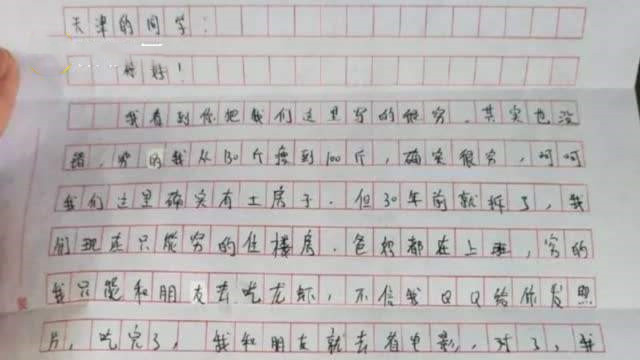 天津的同学:
你好!
我看到你把我们这里写的很穷,其实也没
错,穷的我从130斤瘦到100斤,确实很穷,呵呵
我们这里确实有土房子,但30年前就拆了,我
们现在只能穷的住楼房,爸妈都在上班,穷的
我只能和朋友去吃龙虾,不信我QQ给你发照
片,吃完了,我和朋友就去看电影,对了,